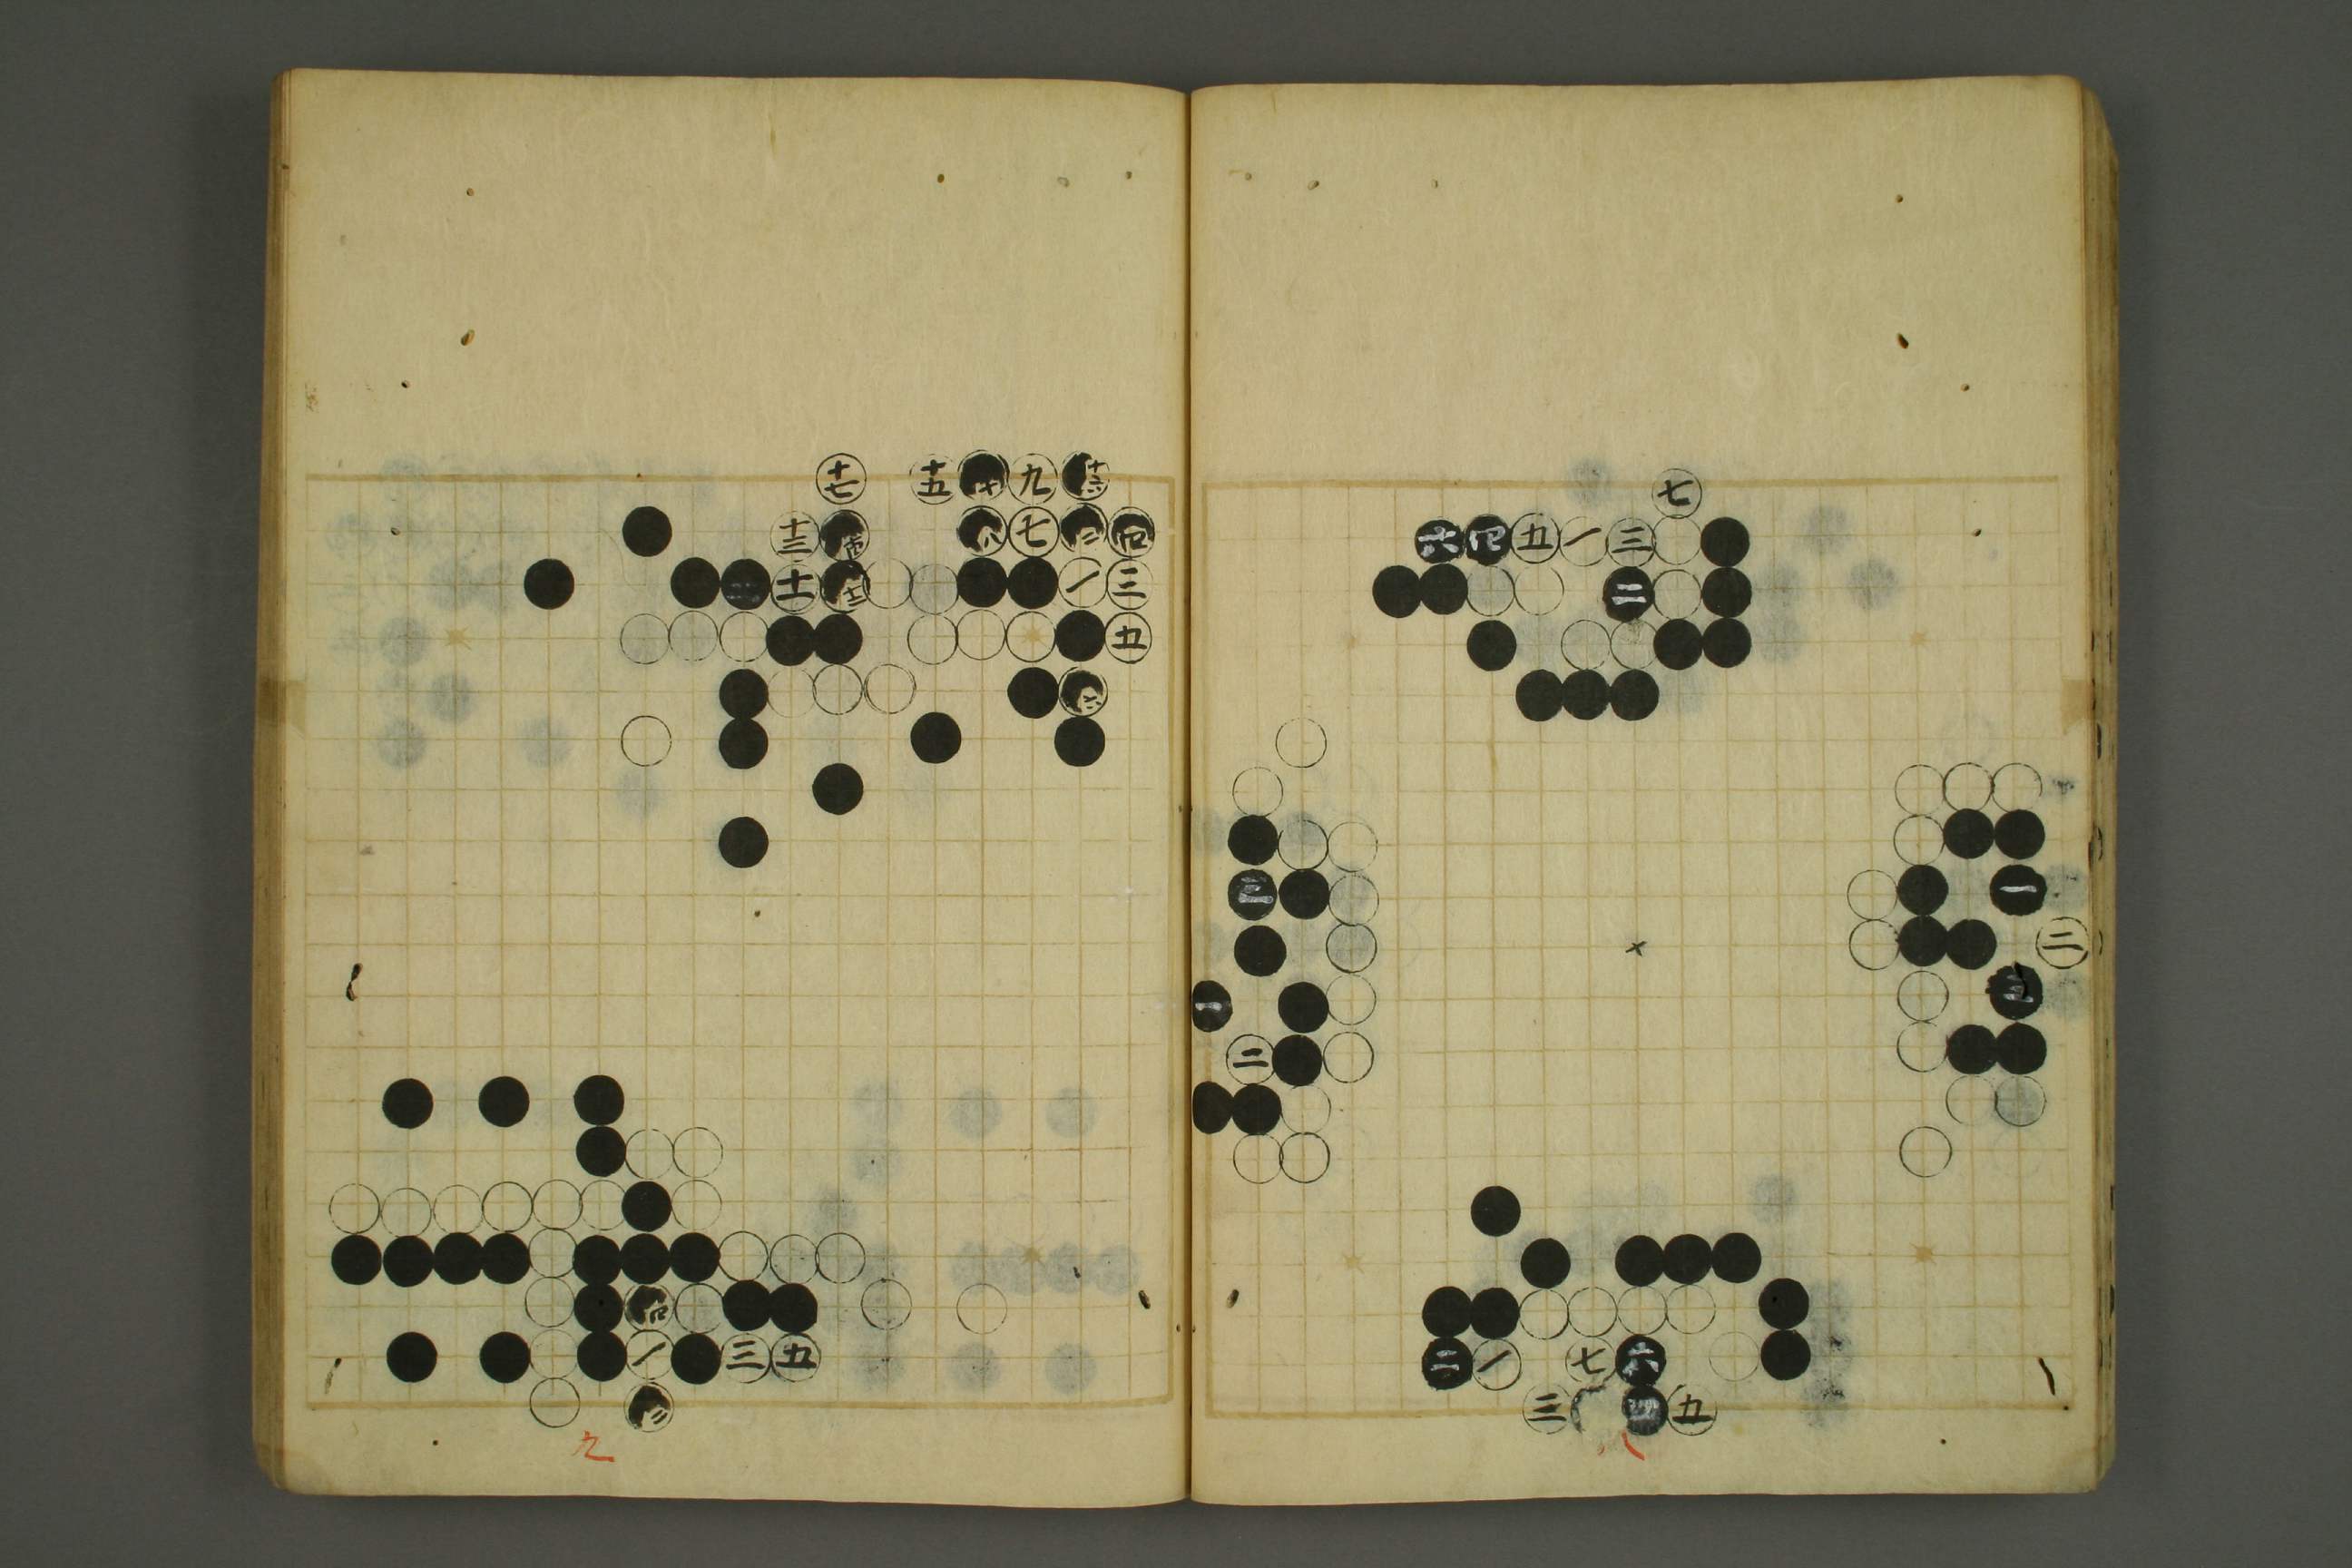 七
六 四 五 一 三
二
三 一
二
一 三
二
二 一 七 六
三 四 五
八
十七 十五 十 九 十六
十三 十四 八 七 二 四
二 十一 十二 一 三
五
六
四
一 三 五
二
九